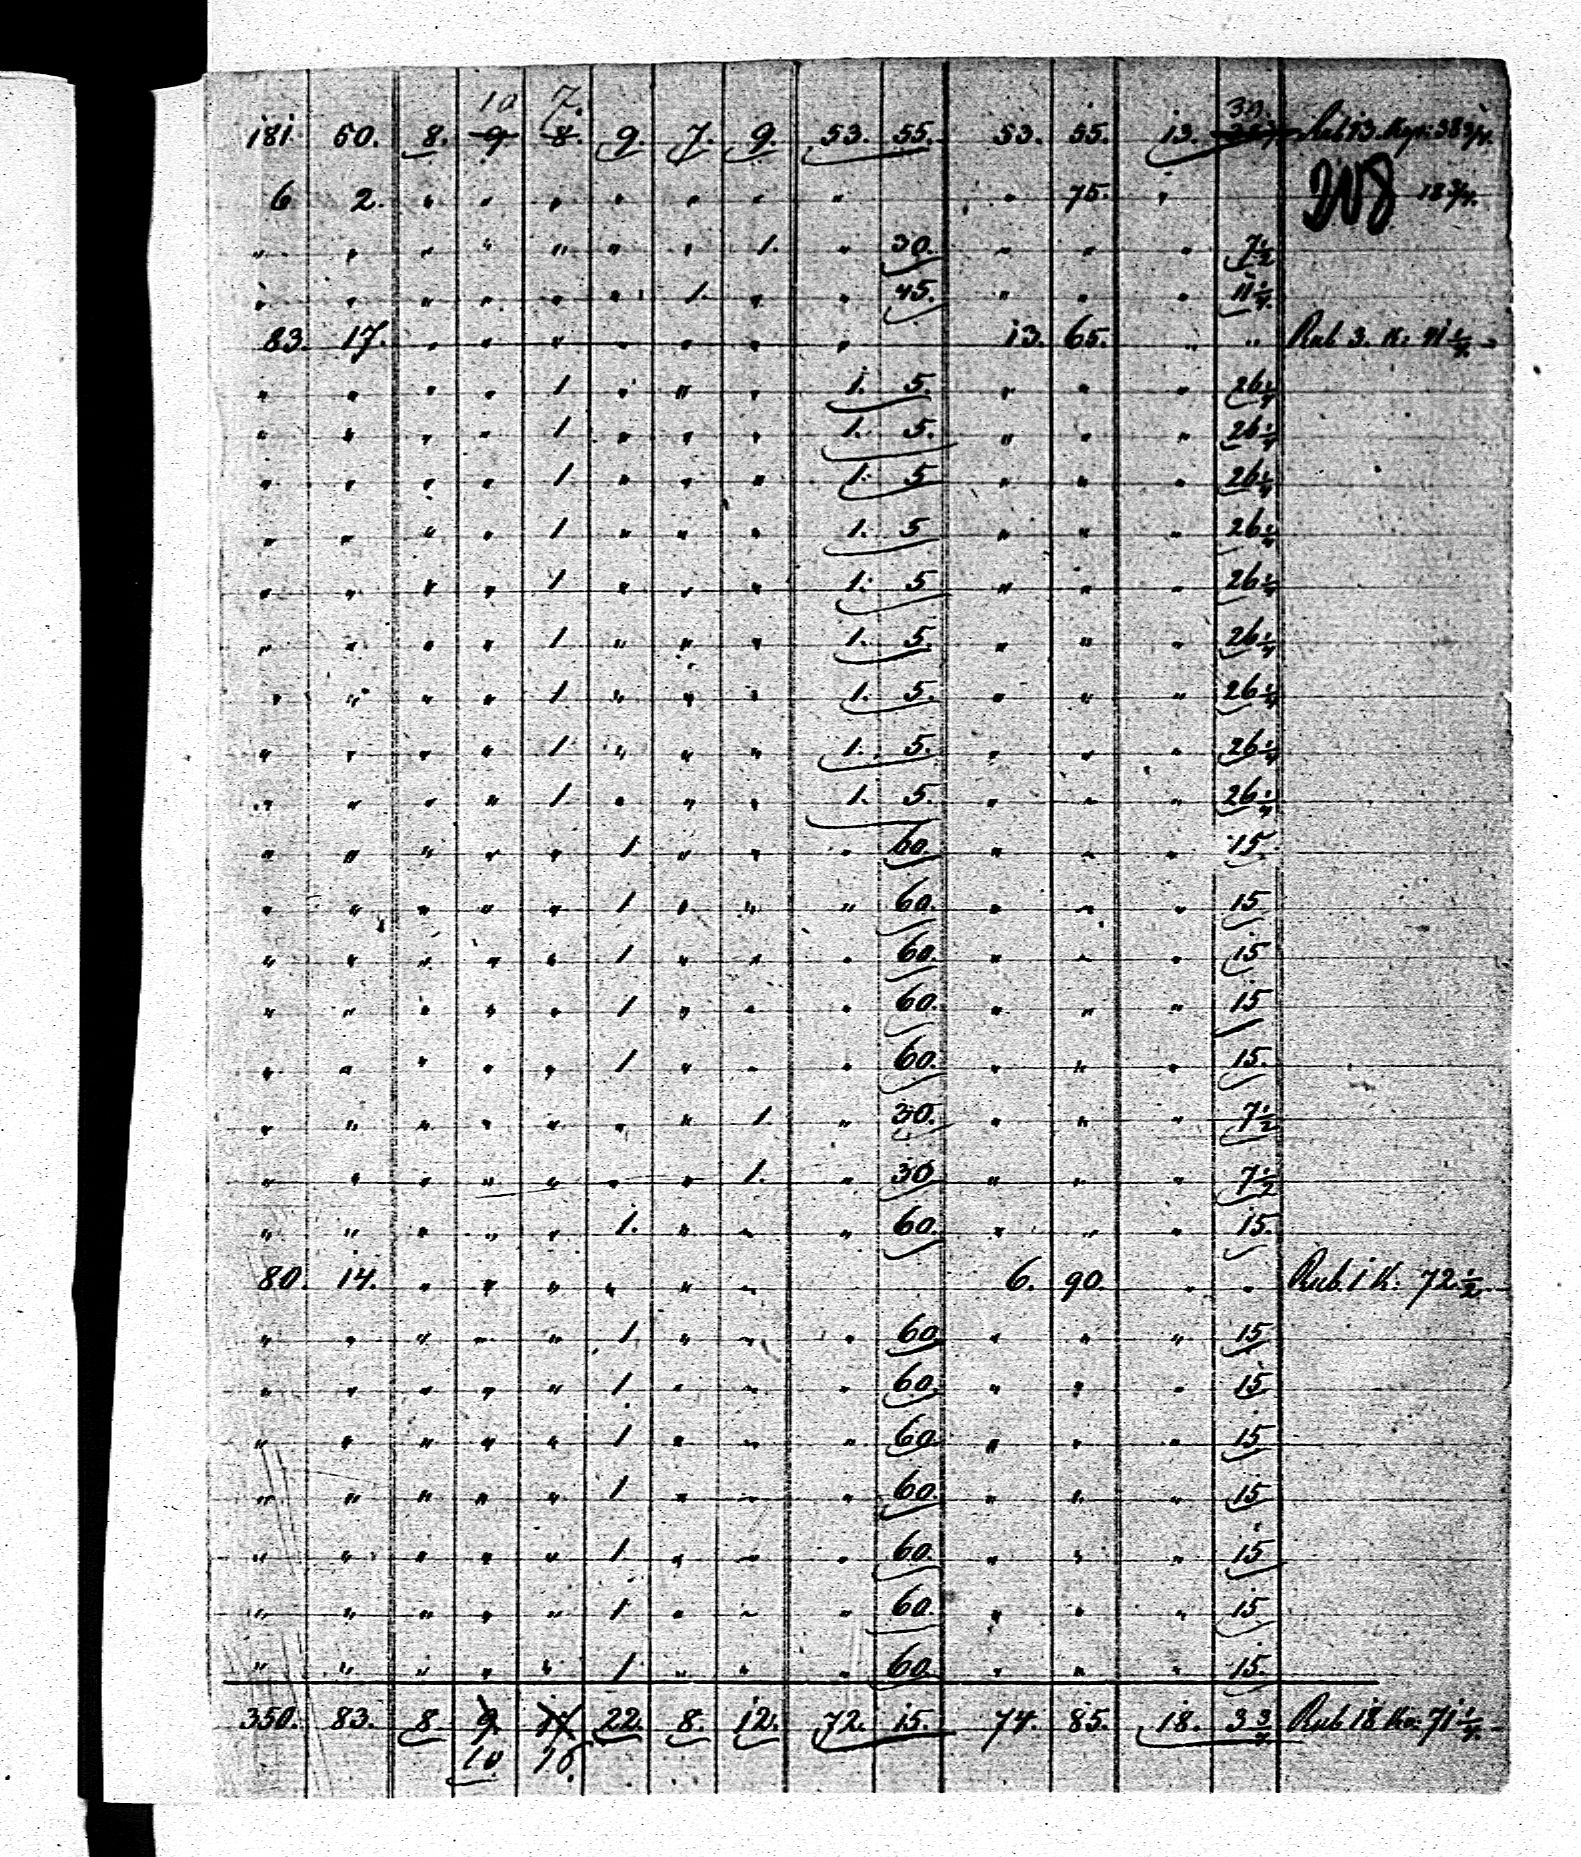 10 7. 30
181 50. 8. 9 8. 9. 7. 9. 53. 55. 53. 55. 13. Rub 13. Kop: 38 3/4.
6 2. " " " " " " " " 75. " 208 18 3/4.
" " " " " " " 1. " 30. " " " 7 1/2
" " " " " " 1. " " 45. " " " 11 1/4
83. 17. " " " " " " " 13. 65. " " Rub 3. K. 41 1/4
" " " " 1 " " " 1. 5. " " " 26 1/4
" " " " 1 " " " 1. 5. " " " 26 1/4
" " " " 1 " " " 1. 5 " " " 26 1/4
" " " " 1 " " " 1. 5 " " " 26 1/4
" " " " 1 " " " 1. 5 " " " 26 1/4
" " " " 1 " " " 1. 5. " " " 26 1/4
" " " " 1 " " " 1. 5. " " " 26 1/4
" " " " 1 " " " 1. 5. " " " 26 1/4
" " " " 1 " " " 1. 5. " " " 26 1/4
" " " " " 1 " " " 60. " " " 15.
" " " " " 1 " " " 60. " " " 15
" " " " " 1 " " " 60. " " " 15
" " " " " 1 " " " 60. " " " 15
" " " " " 1 " " " 60. " " " 15.
" " " " " " " 1. " 30. " " " 7 1/2
" " " " " " " 1. " 30 " " " 7 1/2
" " " " " 1. " " " 60. " " " 15.
80. 14. " " " " " " 6. 90. " " Rub. 1 K: 72 1/2
" " " " " 1 " " " 60 " " " 15
" " " " " 1 " " " 60. " " " 15
" " " " " 1 " " " 60 " " " 15
" " " " " 1 " " " 60. " " " 15
" " " " " 1 " " " 60. " " " 15
" " " " " 1 " " " 60. " " " 15
" " " " " 1 " " " 60 " " " 15.
350. 83. 8 9. 17 22. 8. 12. 72. 15. 74. 85. 18. 3 3/4 Rub 18 Ko: 71 1/4
10 16.